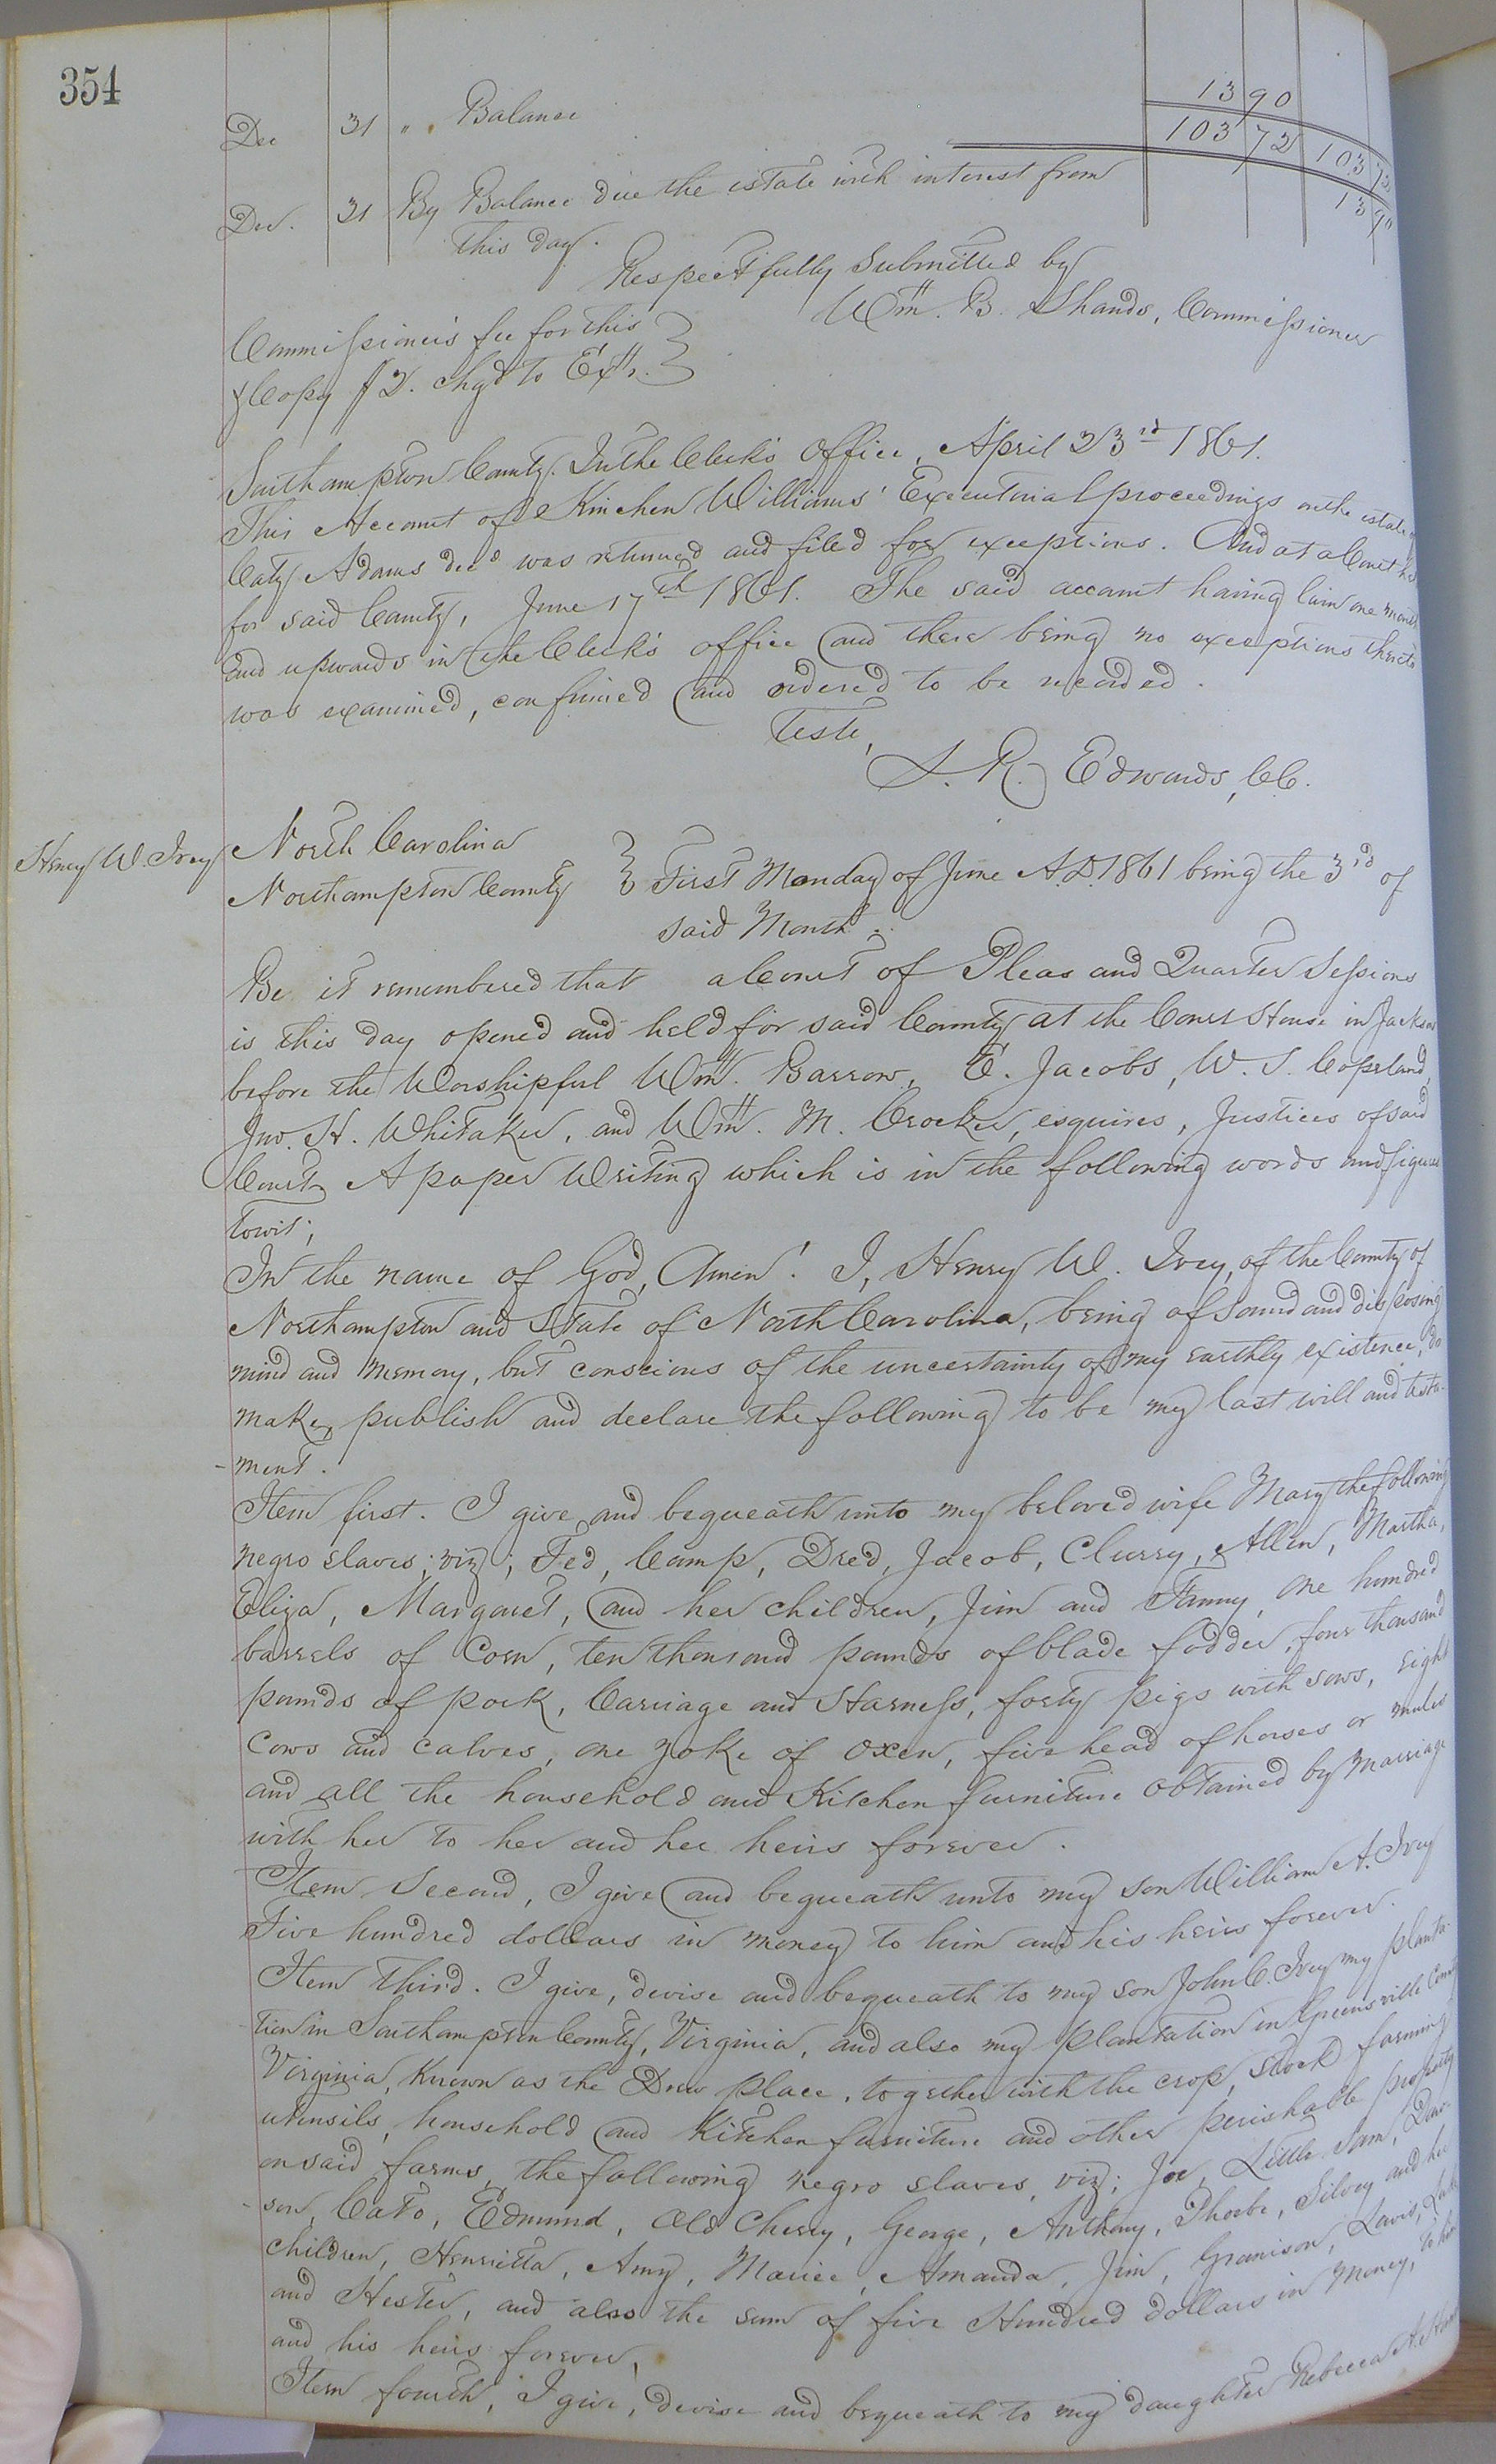 354
Dec 31 " " Balance 13 90
103 72 103 72
Dec. 31 By Balance due the estate with interest from 13 90
this day.
Respectfully Submitted by
Wm. B. Shands, Commissioner
Commissioner's fee for this
& Copy $2. chgd to Exr.
Southampton County. In the Clerk's Office, April 23rd 1861.
This Account of Kinchen Williams' Executorial proceedings on the estate of
Caty Adams decd was returned and filed for exceptions. And at a Court
for said County, June 17th 1861. The said account having lain one month
and upwards in the Clerk's office and there being no exceptions thereto
was examined, confirmed and ordered to be recorded.
Teste,
L. R. Edwards, CC.
Henry W. Ivey
North Carolina
Northampton County } First Monday of June A.D. 1861 being the 3rd of
said Month.
Be it remembered that a Court of Pleas and Quarter Sessions
is this day opened and held for said County at the Court House in Jackson
before the Worshipful Wm. Barrow, E. Jacobs, W. S. Copeland,
Jno. H. Whitaker, and Wm. M. Crocker, esquires, Justices of said
Court, A paper Writing which is in the following words and figures
towit;
In the name of God, Amen! I, Henry W. Ivey, of the County of
Northampton and State of North Carolina, being of sound and disposing
mind and memory, but conscious of the uncertainty of my earthly existence, do
make, publish and declare the following to be my last will and testa-
-ment.
Item first. I give and bequeath unto my beloved wife Mary the following
negro slaves; viz; Ted, Camp, Dred, Jacob, Clurry, Allen, Martha,
Eliza, Margaret, and her children, Jim and Fanny, one hundred
barrels of Corn, ten thousand pounds of blade fodder, four thousand
pounds of pork, Carriage and Harness, forty pigs with sows, eight
Cows and calves, one yoke of oxen, five head of horses or mules
and all the household and Kitchen furniture obtained by marriage
with her to her and her heirs forever.
Item Second, I give and bequeath unto my son William A. Ivey
Five hundred dollars in money to him and his heirs forever.
Item Third. I give, devise and bequeath to my son John C. Ivey my planta-
tion in Southampton County, Virginia, and also my plantation in Greensville County
Virginia, known as the Drew place, together with the crop, stock farming
utensils, household and Kitchen furniture and other perishable property
on said farms, the following negro slaves, viz; Joe, Little Sam, Daw-
-son, Cato, Edmund, Old Cherry, George, Anthony, Phoebe, Silvey and her
children, Henrietta, Amy, Mariee, Amanda, Jim, Granison, Lavid,
and Hester, and also the sum of five Hundred dollars in money, to him
and his heirs forever,
Item fourth, I give, devise and bequeath to my daughter Rebecca A.